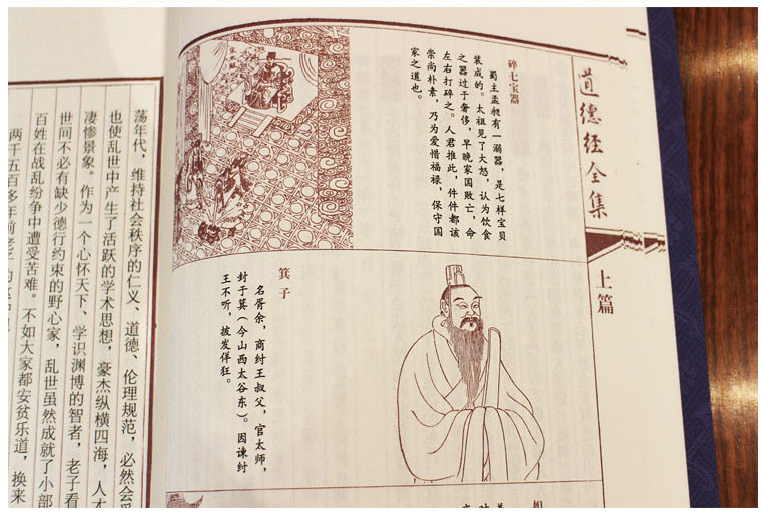 道德经全集
上篇
碎七宝器
蜀主孟昶有一溺器，是七样宝贝
装成的。太祖见了大怒，认为饮食
之器过于奢侈，早晚家国败亡，命
左右打碎之。人君推此，件件都该
崇尚朴素，乃为爱惜福禄，保守国
家之道也。
箕子
名胥余，商纣王叔父，官太师，
封于箕（今山西太谷东）。因谏纣
王不听，披发佯狂。
荡年代，维持社会秩序的仁义、道德、伦理规范，必然会
也使乱世中产生了活跃的学术思想，豪杰纵横四海，人
凄惨景象。作为一个心怀天下、学识渊博的智者，老子看
世间不必有缺少德行约束的野心家，乱世虽然成就了小部
百姓在战乱纷争中遭受苦难。不如大家都安贫乐道，换来
两千五百多年前